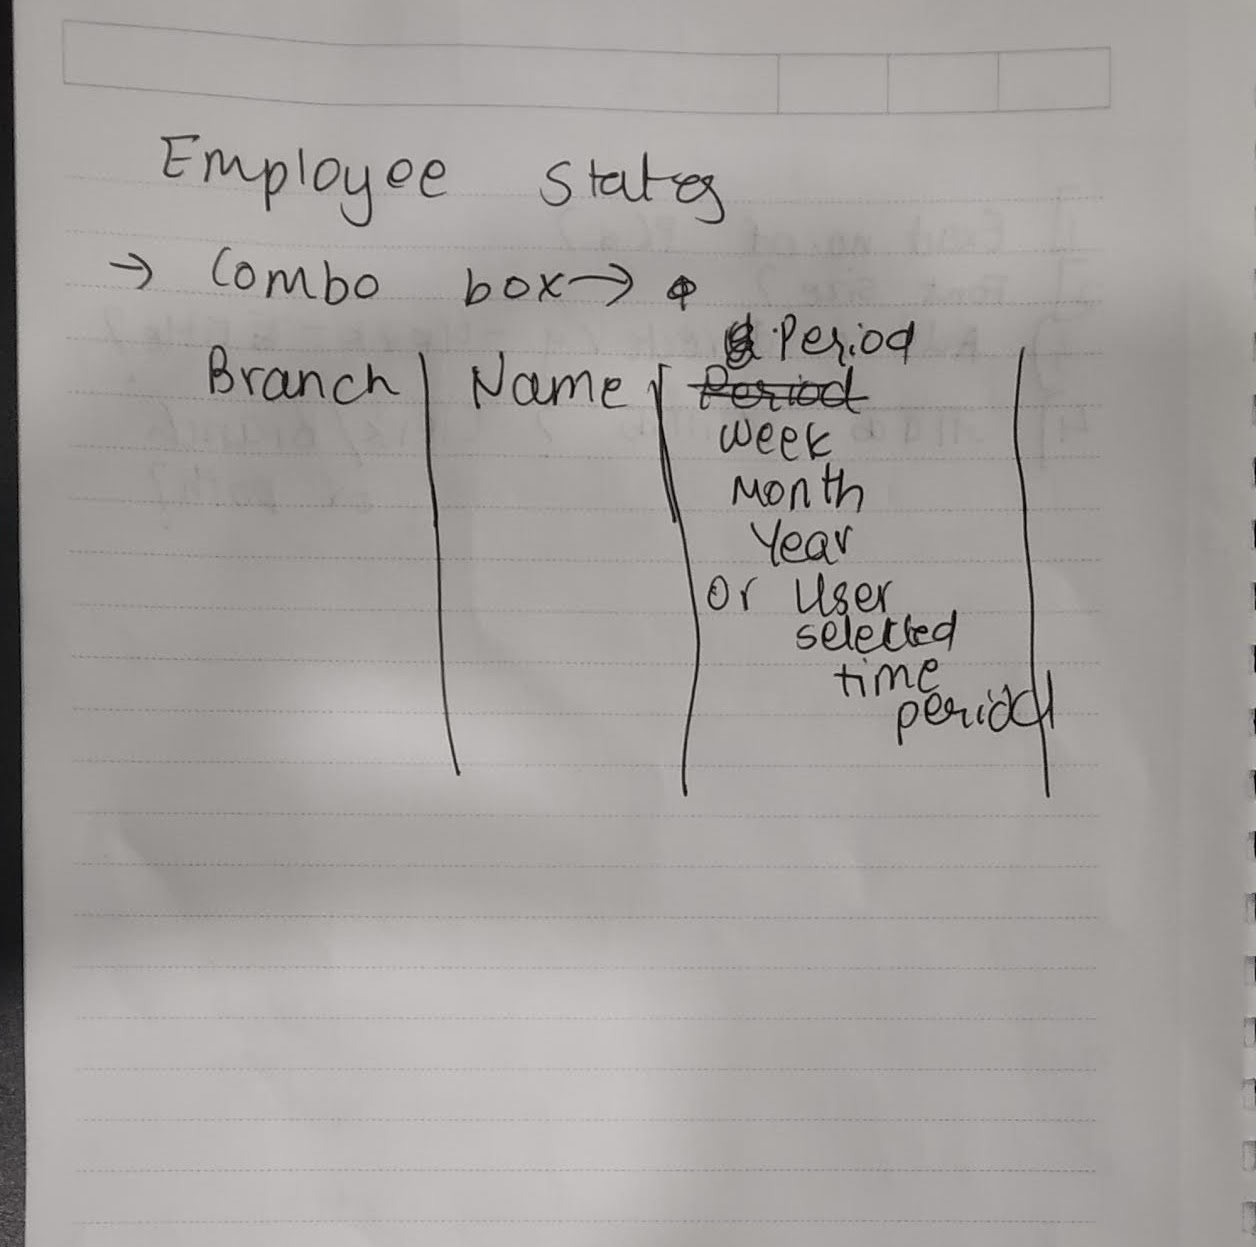 Employee States
→ Combo box →
Period
Branch | Name | Period
week
Month
Year
Or User
selected
time
period